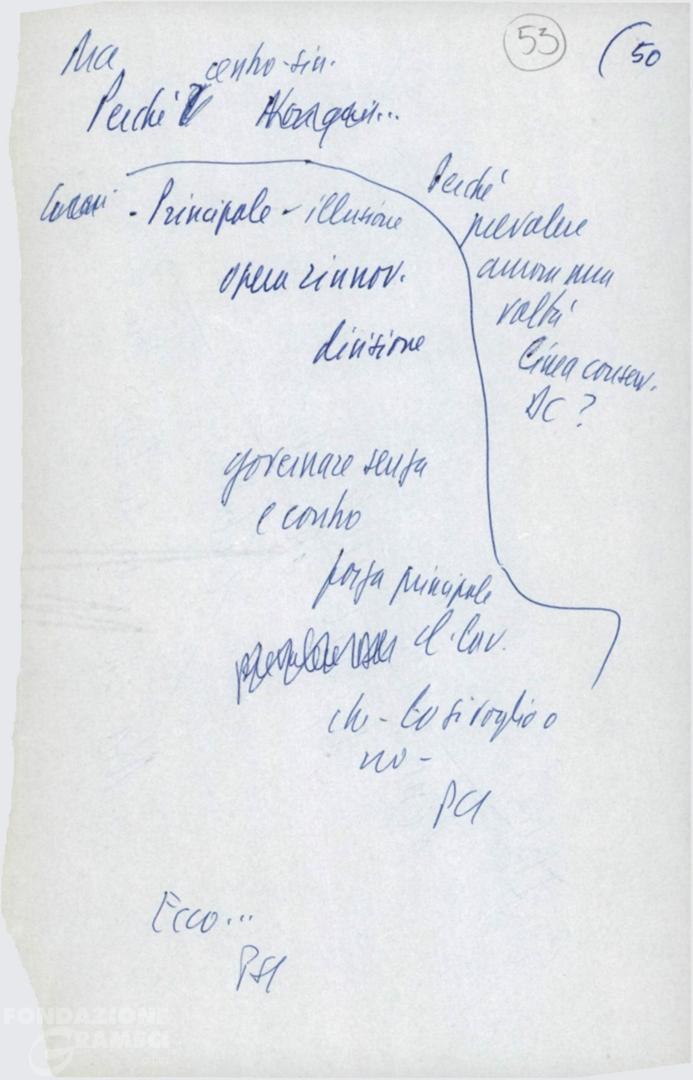 53
(50
Ma centro-sin.
Perché
- Principale - illusione
opera rinnov.
divisione
Perché
prevalere
ancora una
volta
linea conserv.
DC?
governare senza
e contro
forza principale
cl. lav.
che - lo si voglia o
no -
PCI
Ecco...
PSI
FONDAZIONE
GRAMSCI